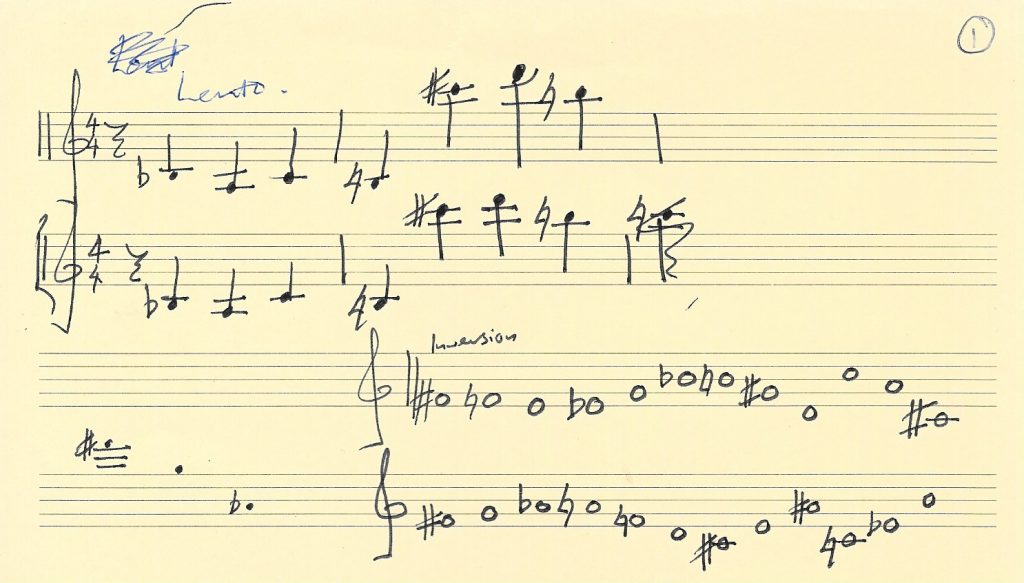 1
Lento.
4 4
4 4
Inversion